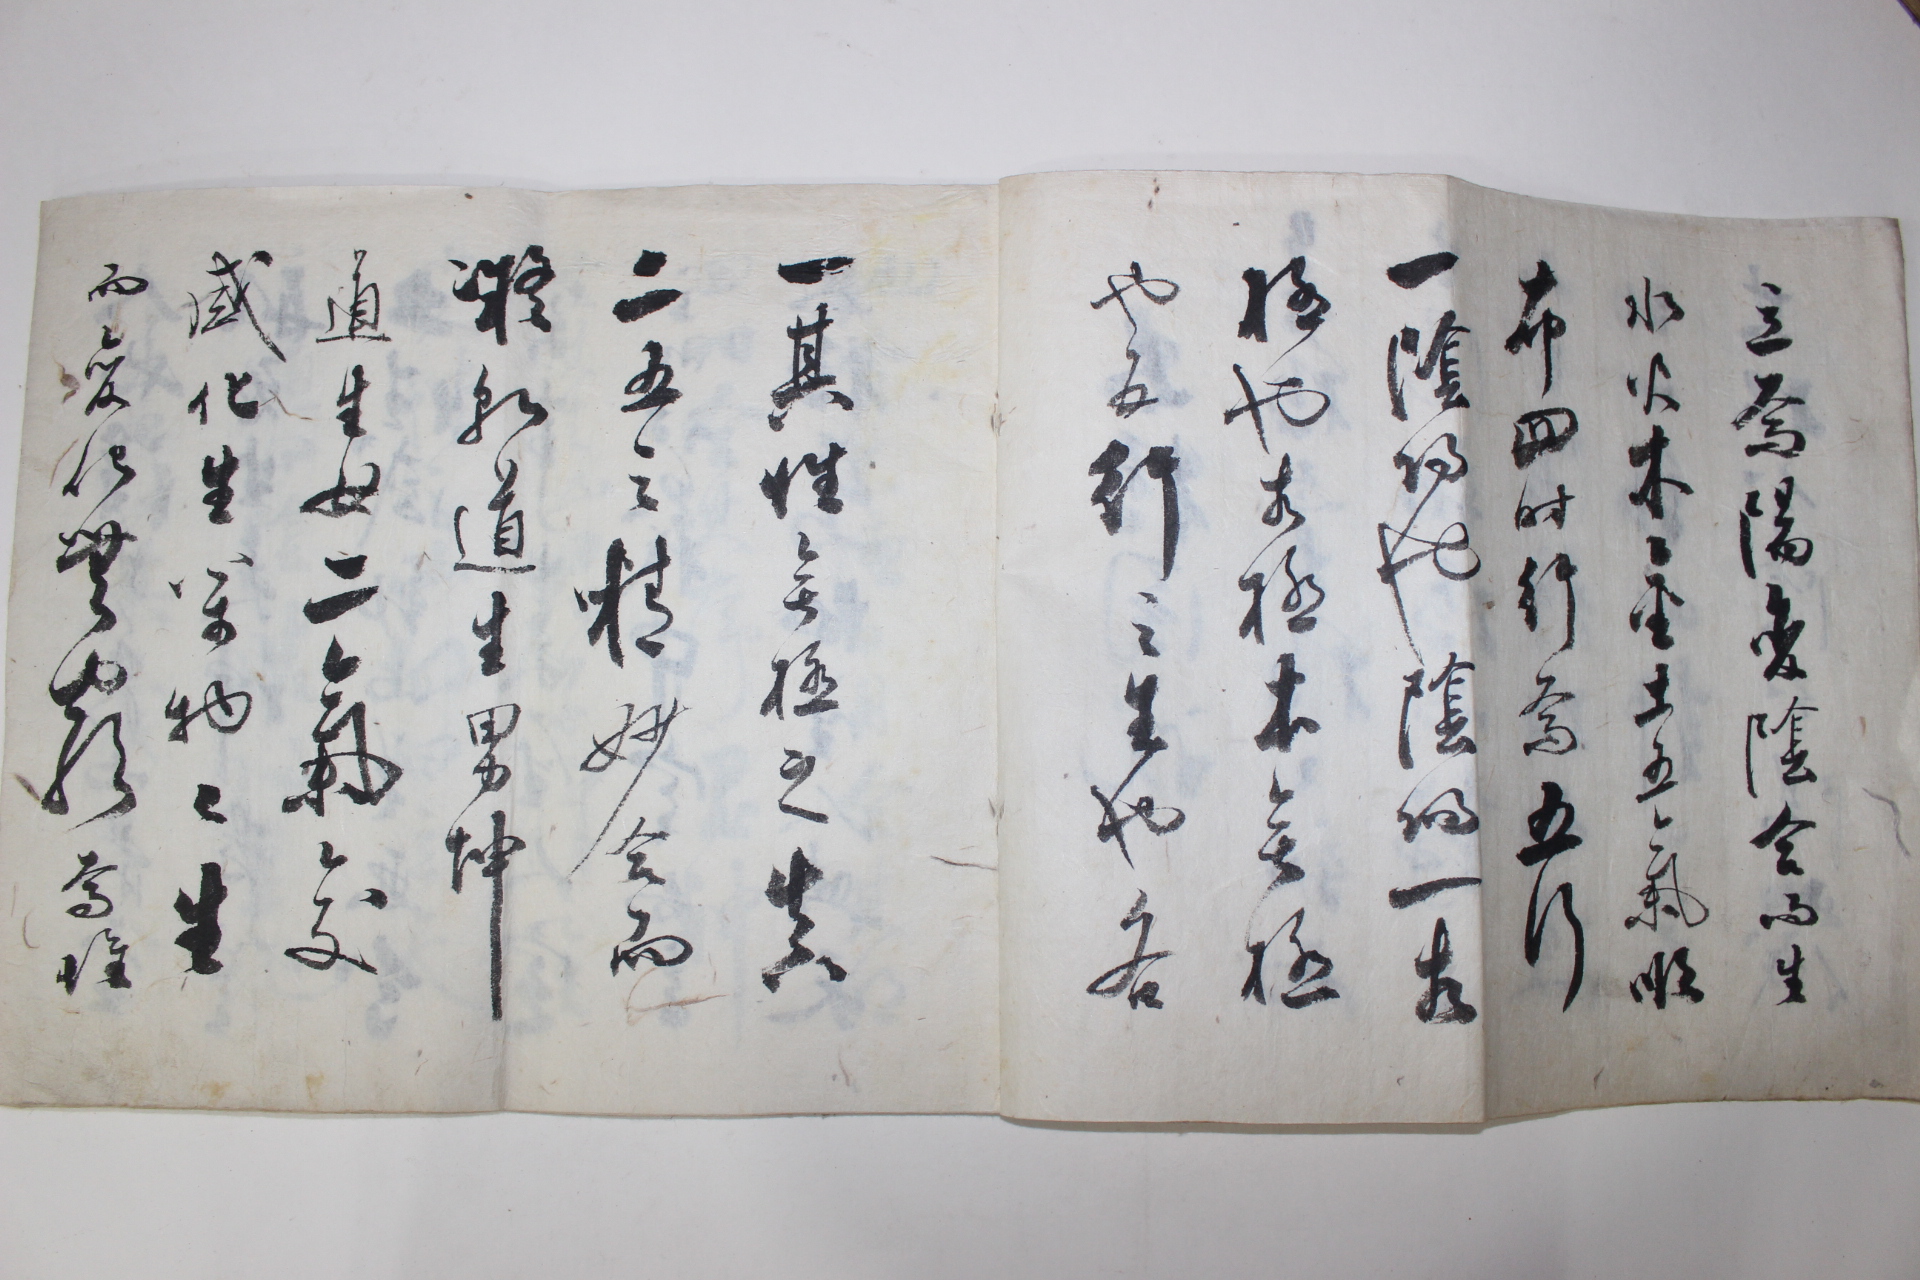 立焉陽變陰合而生
水火木金土五氣順
布四時行焉五行
一陰陽也陰陽一太
極也太極本無極
也五行之生也各
一其性無極之真
二五之精妙合而
凝乾道生男坤
道生女二氣交
感化生萬物〻生
而變化無窮焉惟